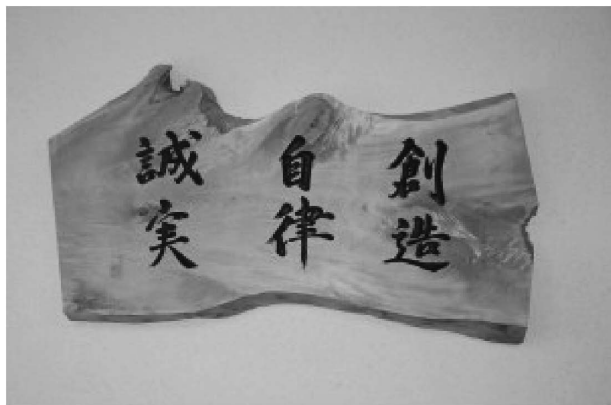 創造
自律
誠実